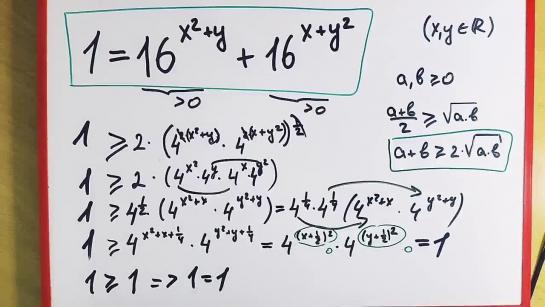 1 = 16^{x²+y} + 16^{x+y²}
>0 >0
(x,y ∈ ℝ)
a,b ≥ 0
a+b/2 ≥ √a.b
a+b ≥ 2·√a.b
1 ≥ 2·(4^{2(x²+y)} · 4^{2(x+y²)})^{1/2}
1 ≥ 2·(4^{x²}·4^{y}·4^{x}·4^{y²})
1 ≥ 4^{1/2}·(4^{x²+x}·4^{y²+y}) = 4^{1/4}·4^{1/4}(4^{x²+x}·4^{y²+y})
1 ≥ 4^{x²+x+1/4}·4^{y²+y+1/4} = 4^{(x+1/2)²}·4^{(y+1/2)²} = 1
0 0
1 ≥ 1 => 1 = 1